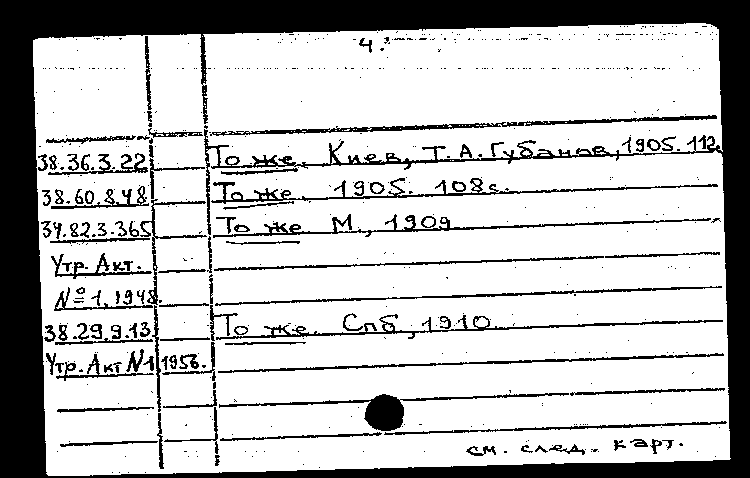 4.
38.36.3.22 То же. Киев, Т.А.Губанов, 1905. 112с.
38.60.8.48 То же. 1905. 108с.
34.82.3.365 То же М., 1909
Утр. Акт.
№1.1948.
38.29.9.13. То же. Спб, 1910
Утр. Акт N1 1956.
см. след. карт.